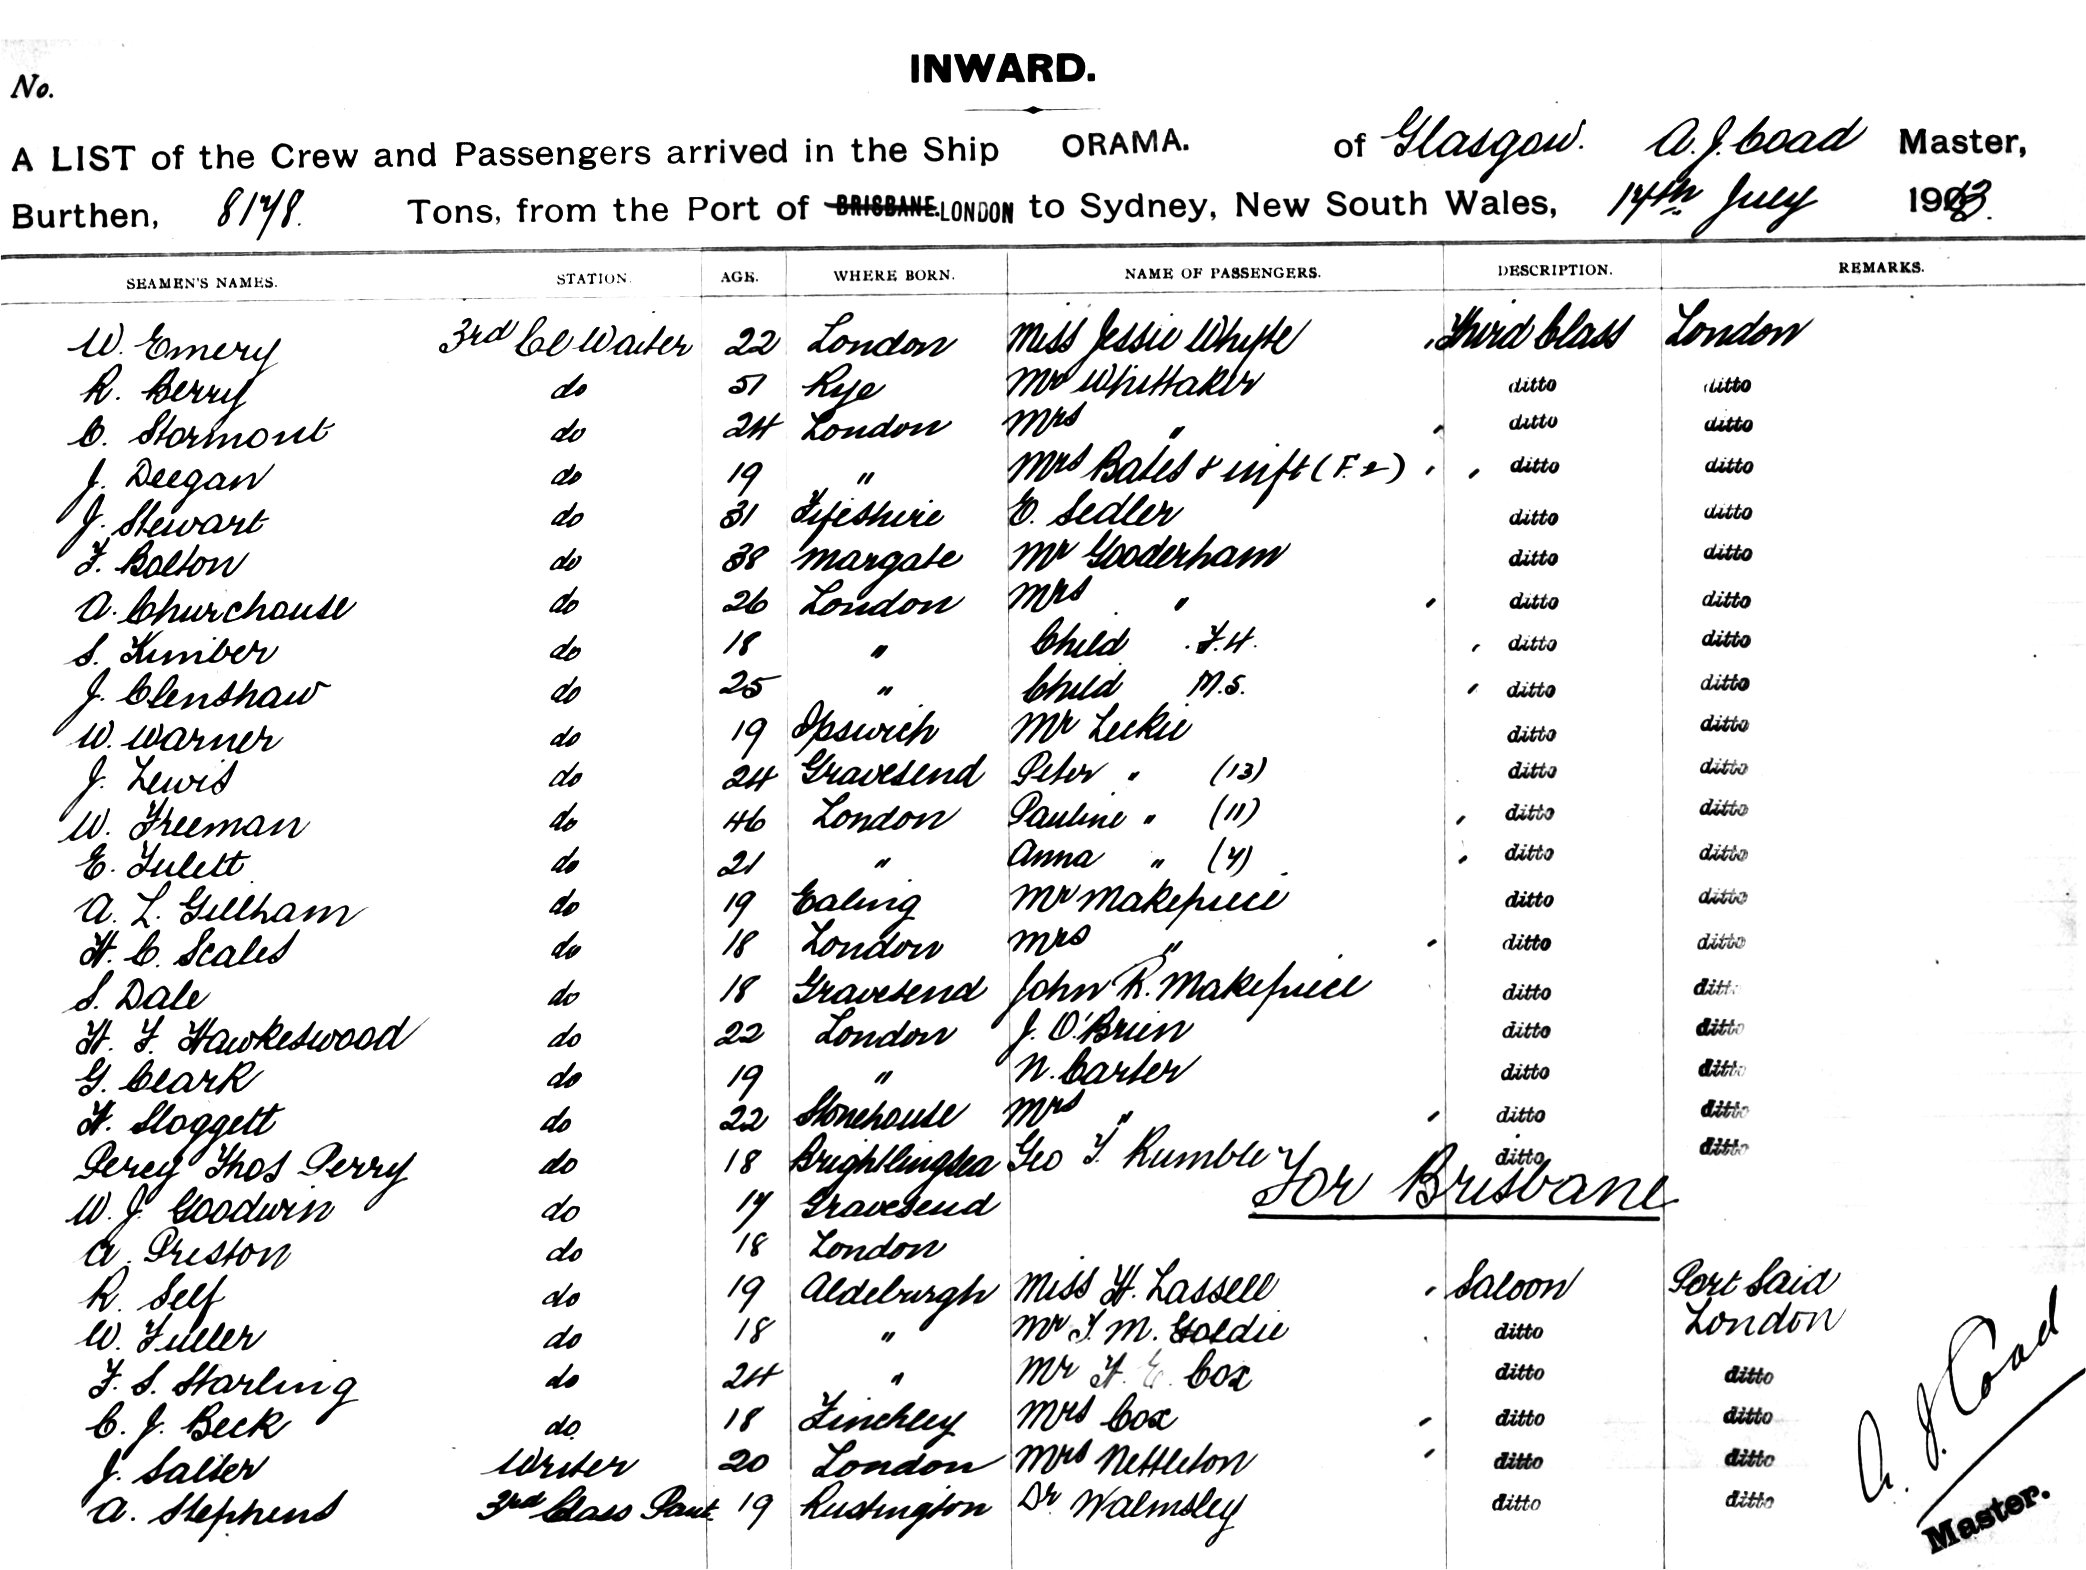 INWARD.
No.
A LIST of the Crew and Passengers arrived in the Ship ORAMA. of Glasgow. A. J. Coad Master,
Burthen, 8178. Tons, from the Port of BRISBANE. LONDON to Sydney, New South Wales, 14th July 1913.
SEAMEN'S NAMES. STATION. AGE. WHERE BORN. NAME OF PASSENGERS. DESCRIPTION. REMARKS.
W. Emery 3rd Cl Waiter 22 London Miss Jessie Whyte Third Class London
R. Berry do 51 Rye Mr Whittaker ditto ditto
C. Stormont do 24 London Mrs " ditto ditto
J. Deegan do 19 " Mrs Bates & inft (F. 2) ditto ditto
J. Stewart do 31 Fifeshire E. Sedler ditto ditto
F. Bolton do 38 Margate Mr Gooderham ditto ditto
A. Churchouse do 26 London Mrs " ditto ditto
S. Kimber do 18 " Child F.H. ditto ditto
J. Clenshaw do 25 " Child M.S. ditto ditto
W. Warner do 19 Ipswich Mr Leckie ditto ditto
J. Lewis do 24 Gravesend Peter " (13) ditto ditto
W. Freeman do 46 London Pauline " (11) ditto ditto
E. Tulett do 21 " Anna " (7) ditto ditto
A. L. Gillham do 19 Ealing Mr Makepiece ditto ditto
H. C. Scales do 18 London Mrs " ditto ditto
S. Dale do 18 Gravesend John R. Makepiece ditto ditto
H. F. Hawkeswood do 22 London J. O'Brien ditto ditto
G. Clark do 19 " N. Carter ditto ditto
H. Sloggett do 22 Stonehouse Mrs " ditto ditto
Percy Thos Perry do 18 Brightlingsea Geo T. Rumble ditto ditto
W. J. Goodwin do 17 Gravesend For Brisbane
A. Preston do 18 London
R. Self do 19 Aldeburgh Miss H. Lassell Saloon Port Said
W. Fuller do 18 " Mr T. M. Goldie ditto London
F. S. Starling do 24 " Mr H. E. Cox ditto ditto
C. J. Beck do. 18 Finchley Mrs Cox ditto ditto
J. Salter Writer 20 London Mrs Nettleton ditto ditto
A. Stephens 3rd Class Pant. 19 Rustington Dr Walmsley ditto ditto
A. J. Coad
Master.